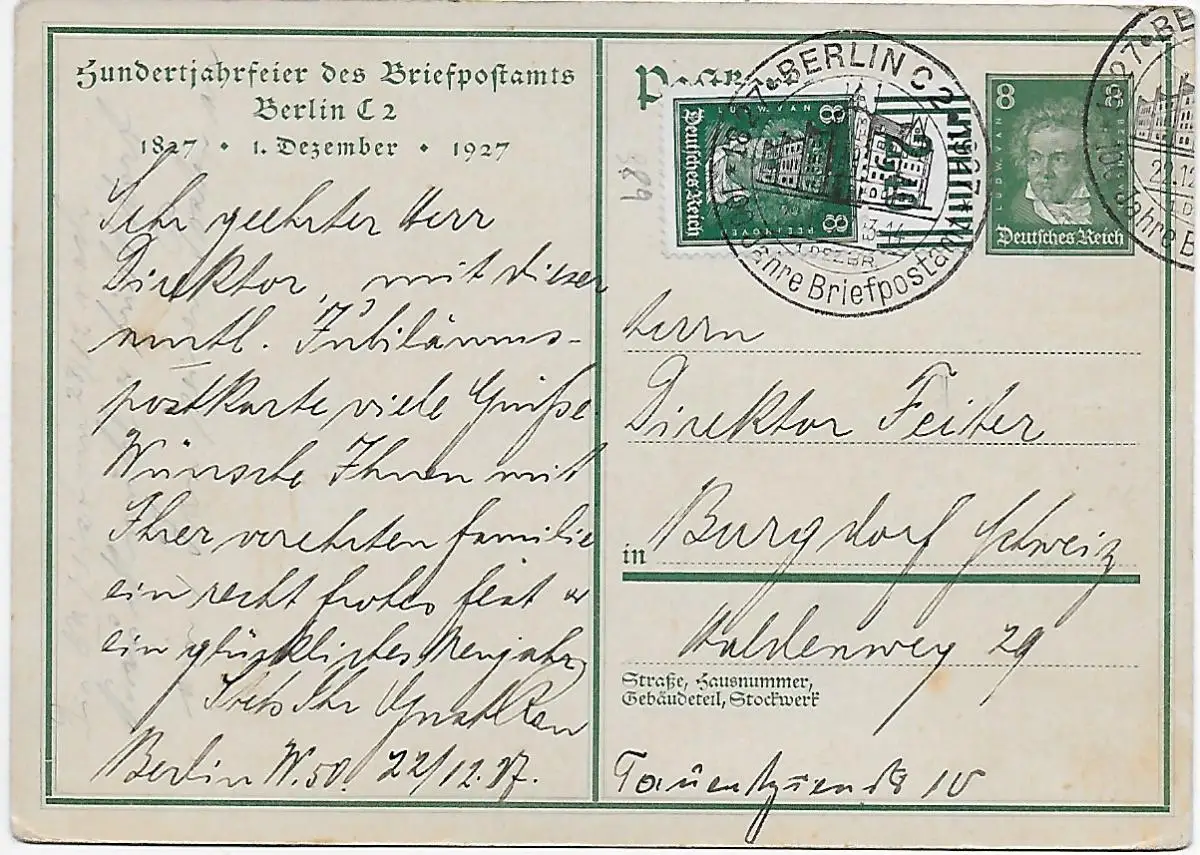 Hundertjahrfeier des Briefpostamts
Berlin C 2
1827 • 1. Dezember • 1927
Sehr geehrter Herr
Direktor, mit dieser
amtl. Jubiläums-
postkarte viele Grüße.
Wünsche Ihnen mit
Ihrer verehrten Familie
ein recht frohes Fest u
ein glückliches Neujahr,
Stets Ihr
Berlin W. 50. 22/12.27.
BERLIN C 2
1827
13-14
100 Jahre Briefpostamt
8
8
LUDW. VAN
BEETHOVEN
Deutsches Reich
8
8
LUDW. VAN
Deutsches Reich
1827 BE
22.12
100 Jahre B
Herrn
Direktor Feiter
in Burgdorf Schweiz
Waldenweg 29
Straße, Hausnummer,
Gebäudeteil, Stockwerk
Tauentzienstr 10